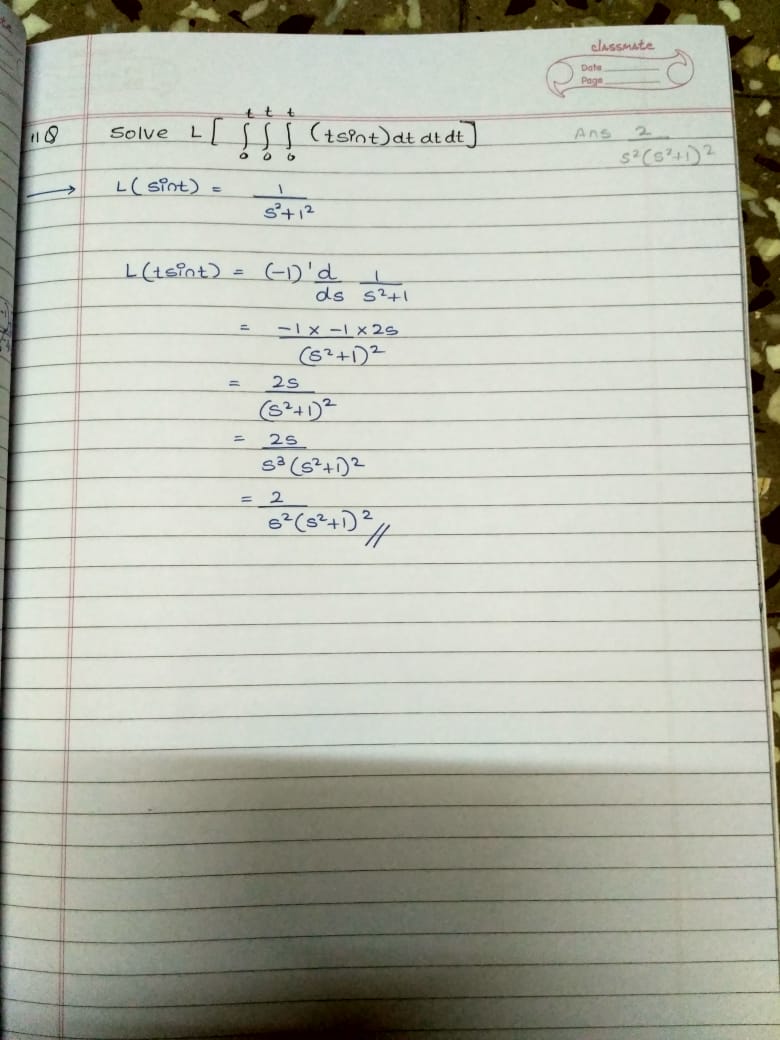 classmate
Date
Page
11Q Solve L[ ∫₀ᵗ ∫₀ᵗ ∫₀ᵗ (tsint)dt dt dt] Ans 2/s²(s²+1)²
→ L(sint) = 1/s²+1²
L(tsint) = (-1)' d/ds 1/s²+1
= -1 x -1 x 2s/(s²+1)²
= 2s/(s²+1)²
= 2s/s³(s²+1)²
= 2/s²(s²+1)² //